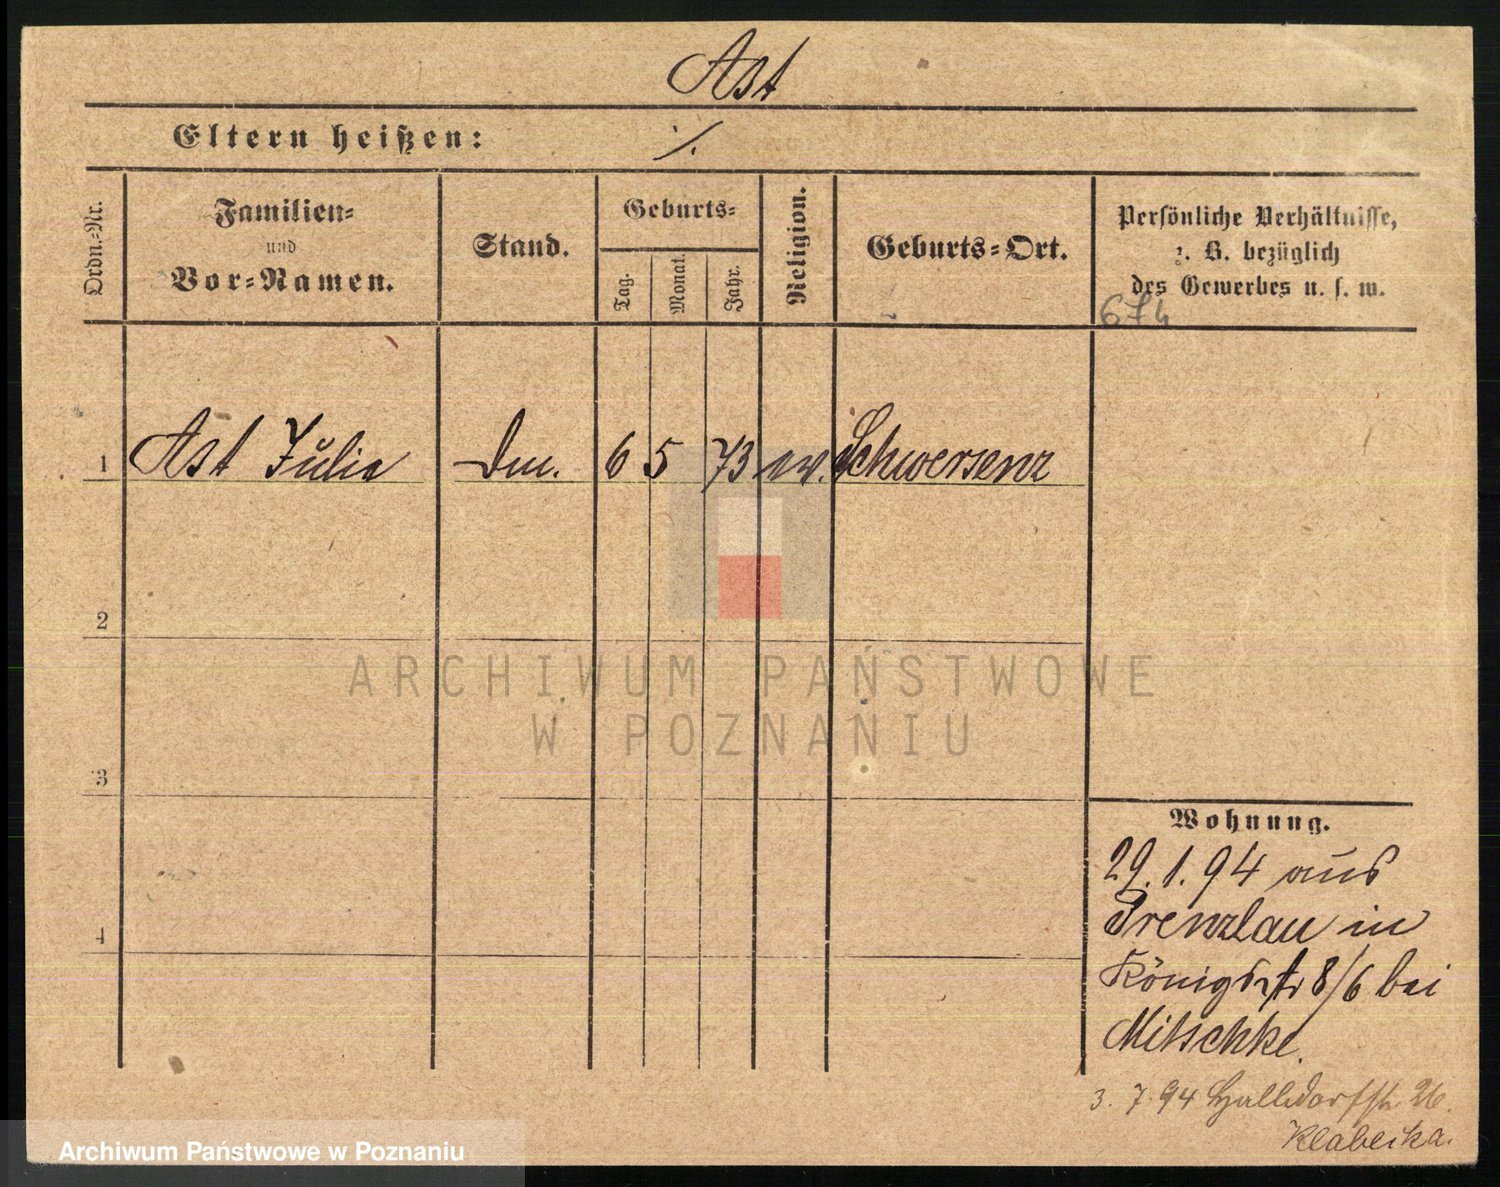 Ast
Eltern heißen: ·/.
Ordn.-Nr.
Familien-
und
Vor-Namen.
Stand.
Geburts-
Tag.
Monat.
Jahr.
Religion.
Geburts-Ort.
Persönliche Verhältnisse,
z. B. bezüglich
des Gewerbes u. s. w.
674
1 Ast Julie 6 5 73 ev. Schwersenz
2
3
4
ARCHIWUM PAŃSTWOWE
W POZNANIU
Wohnung.
29.1.94 aus
Prenzlau in
Königstr 8/6 bei
Mitschke.
3.7.94 Halbdorfstr. 26.
Klabecka.
Archiwum Państwowe w Poznaniu